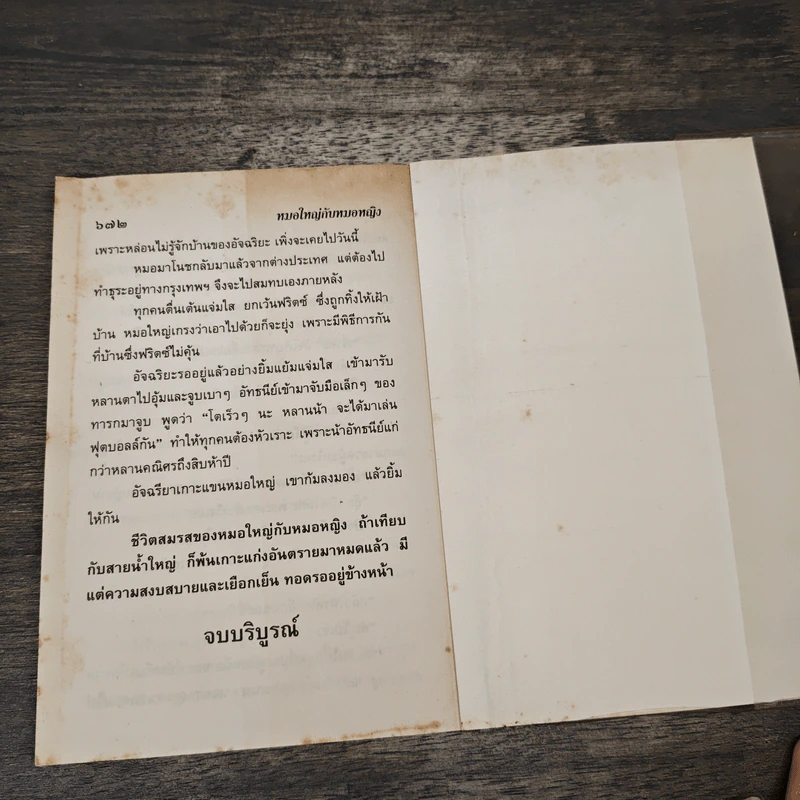 ๖๗๒ หมอใหญ่กับหมอหญิง
เพราะหล่อนไม่รู้จักบ้านของอัจฉริยะ เพิ่งจะเคยไปวันนี้
หมอมาโนชกลับมาแล้วจากต่างประเทศ แต่ต้องไป
ทำธุระอยู่ทางกรุงเทพฯ จึงจะไปสมทบเองภายหลัง
ทุกคนตื่นเต้นแจ่มใส ยกเว้นฟริตซ์ ซึ่งถูกทิ้งให้เฝ้า
บ้าน หมอใหญ่เกรงว่าเอาไปด้วยก็จะยุ่ง เพราะมีพิธีการกัน
ที่บ้านซึ่งฟริตซ์ไม่คุ้น
อัจฉริยะรออยู่แล้วอย่างยิ้มแย้มแจ่มใส เข้ามารับ
หลานตาไปอุ้มและจูบเบาๆ อัทธนีย์เข้ามาจับมือเล็กๆ ของ
ทารกมาจูบ พูดว่า “โตเร็วๆ นะ หลานน้า จะได้มาเล่น
ฟุตบอลล์กัน” ทำให้ทุกคนต้องหัวเราะ เพราะน้าอัทธนีย์แก่
กว่าหลานคณิศรถึงสิบห้าปี
อัจฉรียาเกาะแขนหมอใหญ่ เขาก้มลงมอง แล้วยิ้ม
ให้กัน
ชีวิตสมรสของหมอใหญ่กับหมอหญิง ถ้าเทียบ
กับสายน้ำใหญ่ ก็พ้นเกาะแก่งอันตรายมาหมดแล้ว มี
แต่ความสงบสบายและเยือกเย็น ทอดรออยู่ข้างหน้า
จบบริบูรณ์